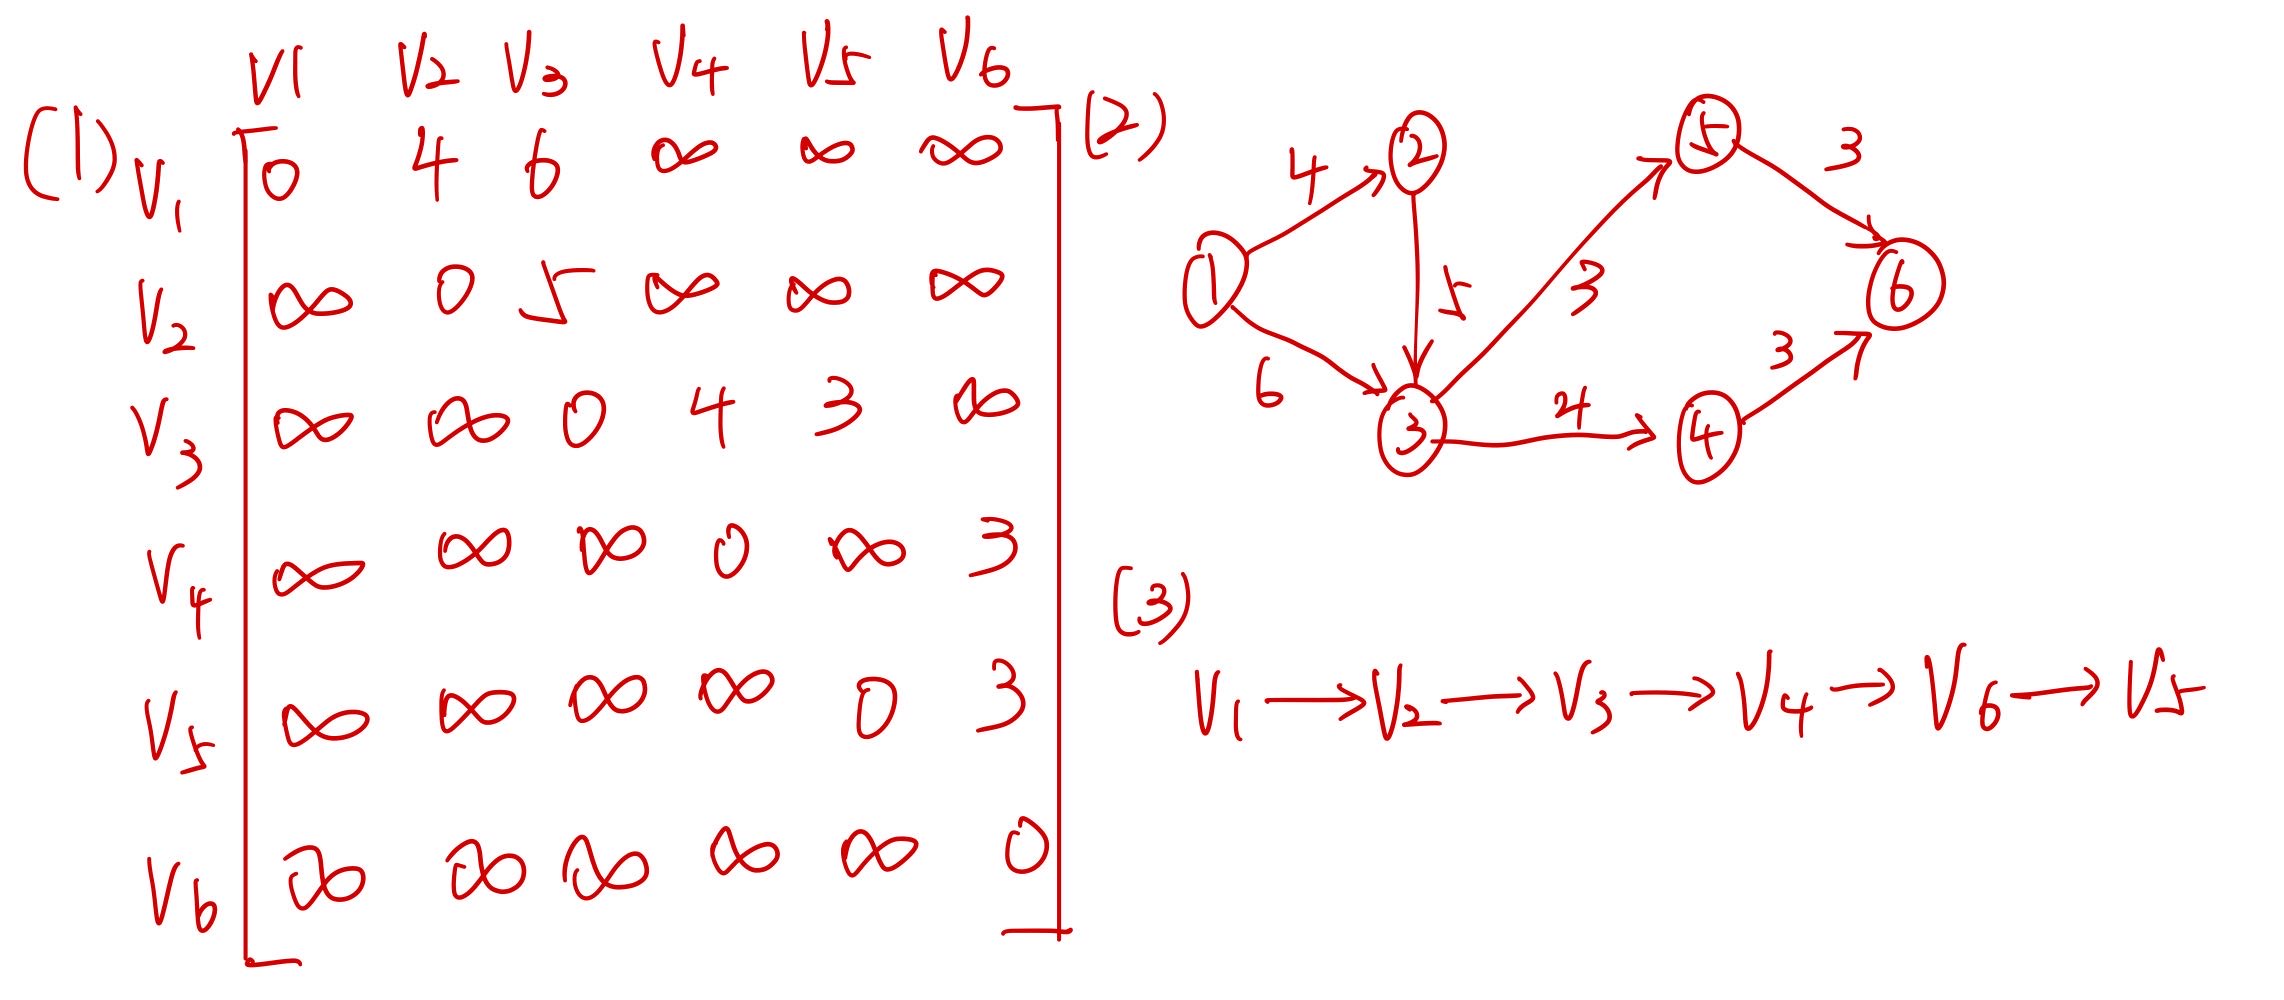 (1)
V1 V2 V3 V4 V5 V6
V1 0 4 6 ∞ ∞ ∞
V2 ∞ 0 5 ∞ ∞ ∞
V3 ∞ ∞ 0 4 3 ∞
V4 ∞ ∞ ∞ 0 ∞ 3
V5 ∞ ∞ ∞ ∞ 0 3
V6 ∞ ∞ ∞ ∞ ∞ 0
(2)
5 3
4 2
1 5 3 6
6 3
3 4 4
(3)
V1 → V2 → V3 → V4 → V6 → V5